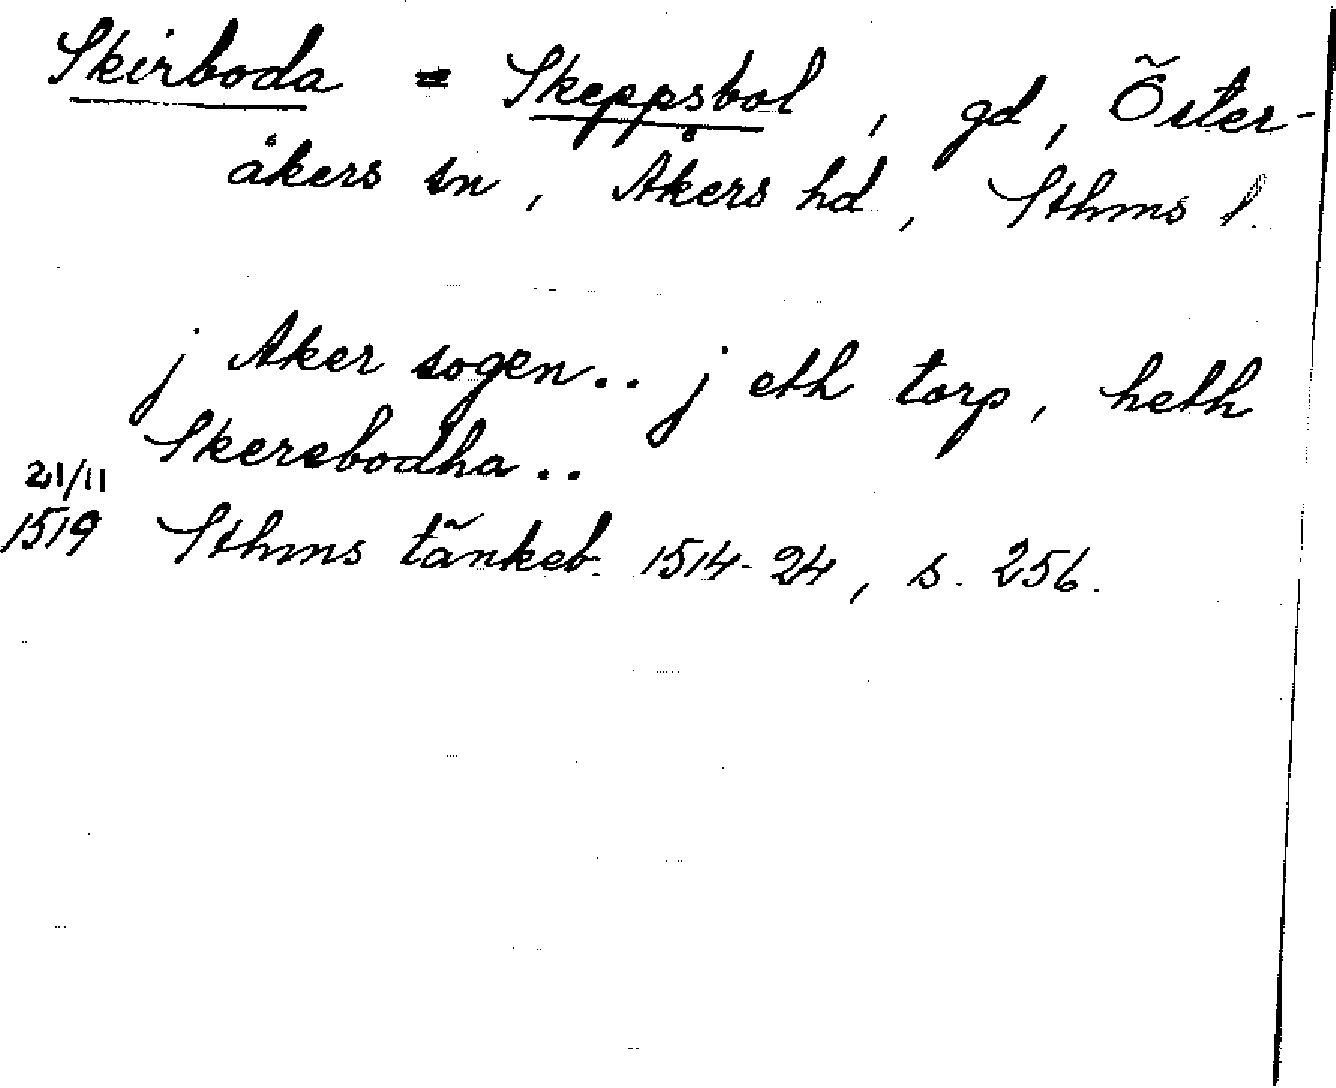 Skirboda = Skeppsbol, gd, Öster-
åkers sn, Åkers hd, Sthms l.
j Aker sogen.. j eth torp, heth
Skerebodha..
21/11
1519 Sthms tänkeb. 1514-24, s. 256.